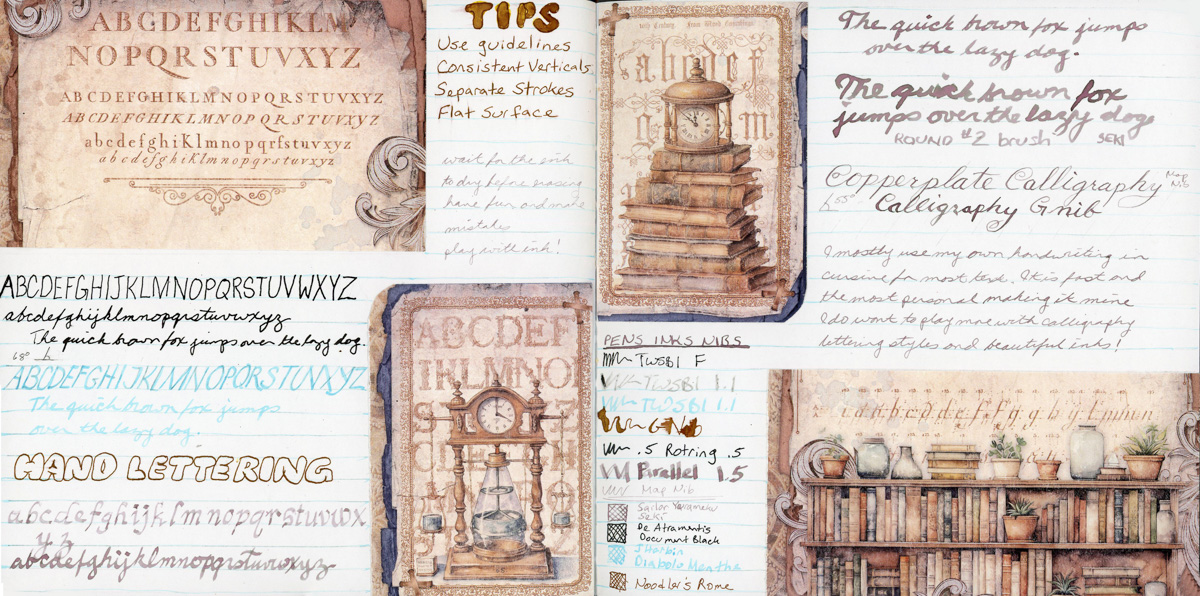 ABCDEFGHIKLM
NOPQRSTUVXYZ
ABCDEFGHIKLMNOPQRSTUVXYZ
ABCDEFGHIKLMNOPQRSTUVXYZ
abcdefghiklmnopqrstuvxyz
abcdefghiklmnopqrstuvxyz
TIPS
Use guidelines
Consistent Verticals
Separate Strokes
Flat Surface
wait for the ink
to dry before erasing
have fun and make
mistakes
play with ink!
ABCDEFGHIJKLMNOPQRSTUVWXYZ
abcdefghijklmnopqrstuvwxyz
The quick brown fox jumps over the lazy dog.
68°
ABCDEFGHIJKLMNOPQRSTUVWXYZ
The quick brown fox jumps
over the lazy dog.
HAND LETTERING
abcdefghijklmnopqrstuvwx
yz
abcdefghijklmnopqrstuvwxyz
ABCDEF
IKLMNO
abcdef
g m
The quick brown fox jumps
over the lazy dog.
The quick brown fox
jumps over the lazy dog
ROUND #2 brush SEKI
Copperplate Calligraphy Map Nib
55° Calligraphy G nib
I mostly use my own handwriting in
cursive for most text. It is fast and
the most personal making it mine
I do want to play more with calligraphy
lettering styles and beautiful inks!
PENS INKS NIBS
TWSBI F
TWSBI 1.1
TWSBI 1.1
G Nib
.5 Rotring .5
Parallel 1.5
Map Nib
Sailor Yurameku
Seki
De Atramentis
Document Black
J Herbin
Diabolo Menthe
Noodler's Rome